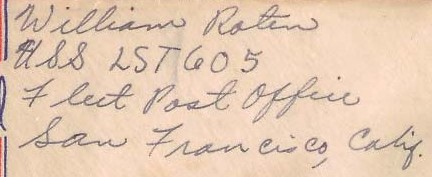 William Roten
USS LST 605
Fleet Post Office
San Francisco, Calif.